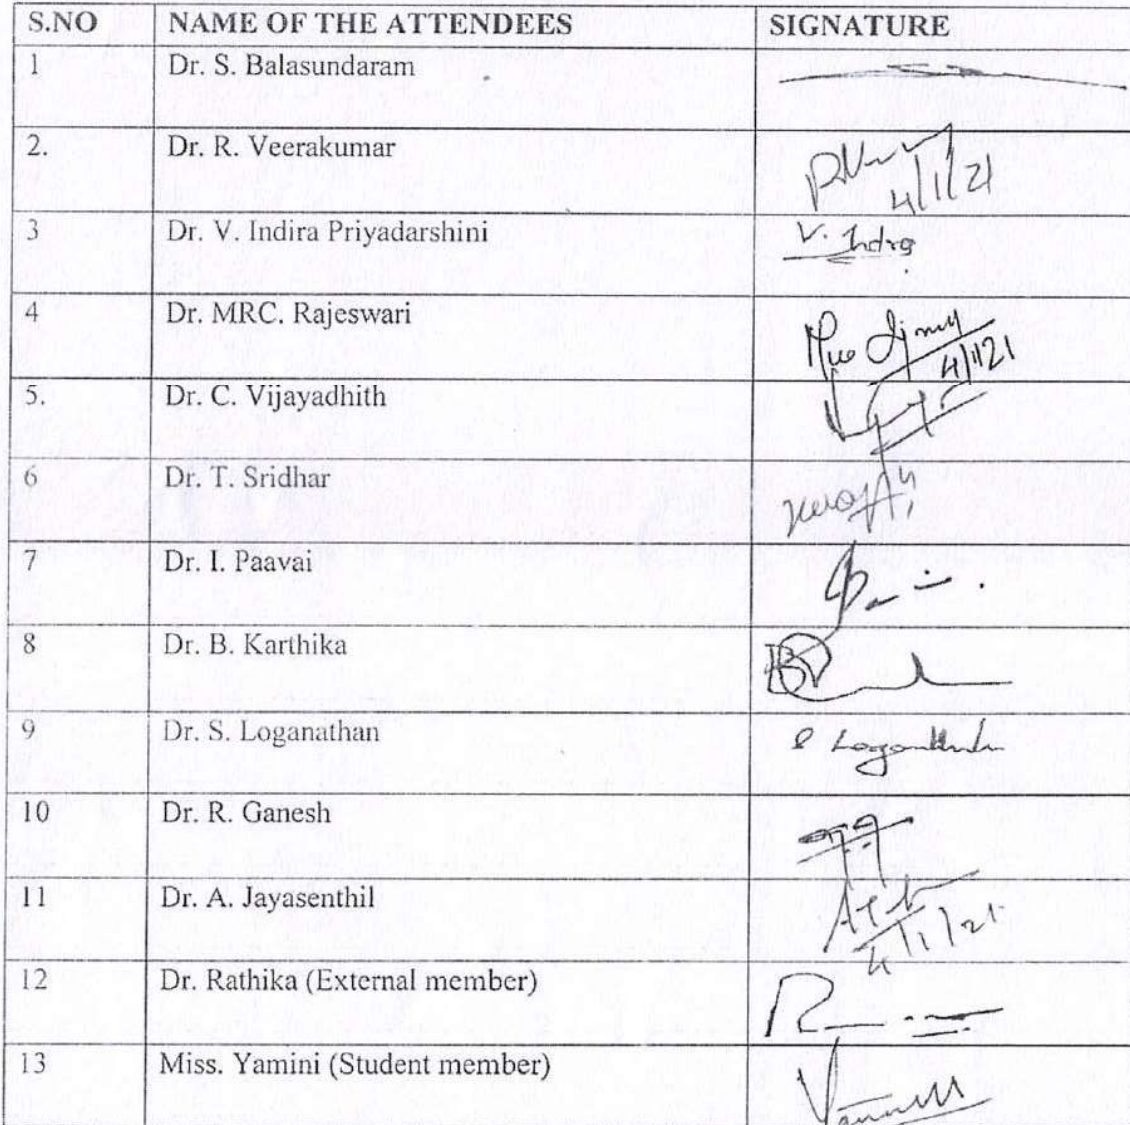 S.NO NAME OF THE ATTENDEES SIGNATURE
1 Dr. S. Balasundaram
2. Dr. R. Veerakumar
4/1/21
3 Dr. V. Indira Priyadarshini V. Indra
4 Dr. MRC. Rajeswari
4/1/21
5. Dr. C. Vijayadhith
6 Dr. T. Sridhar
7 Dr. I. Paavai
8 Dr. B. Karthika
9 Dr. S. Loganathan
10 Dr. R. Ganesh
11 Dr. A. Jayasenthil
4/1/21
12 Dr. Rathika (External member)
13 Miss. Yamini (Student member)